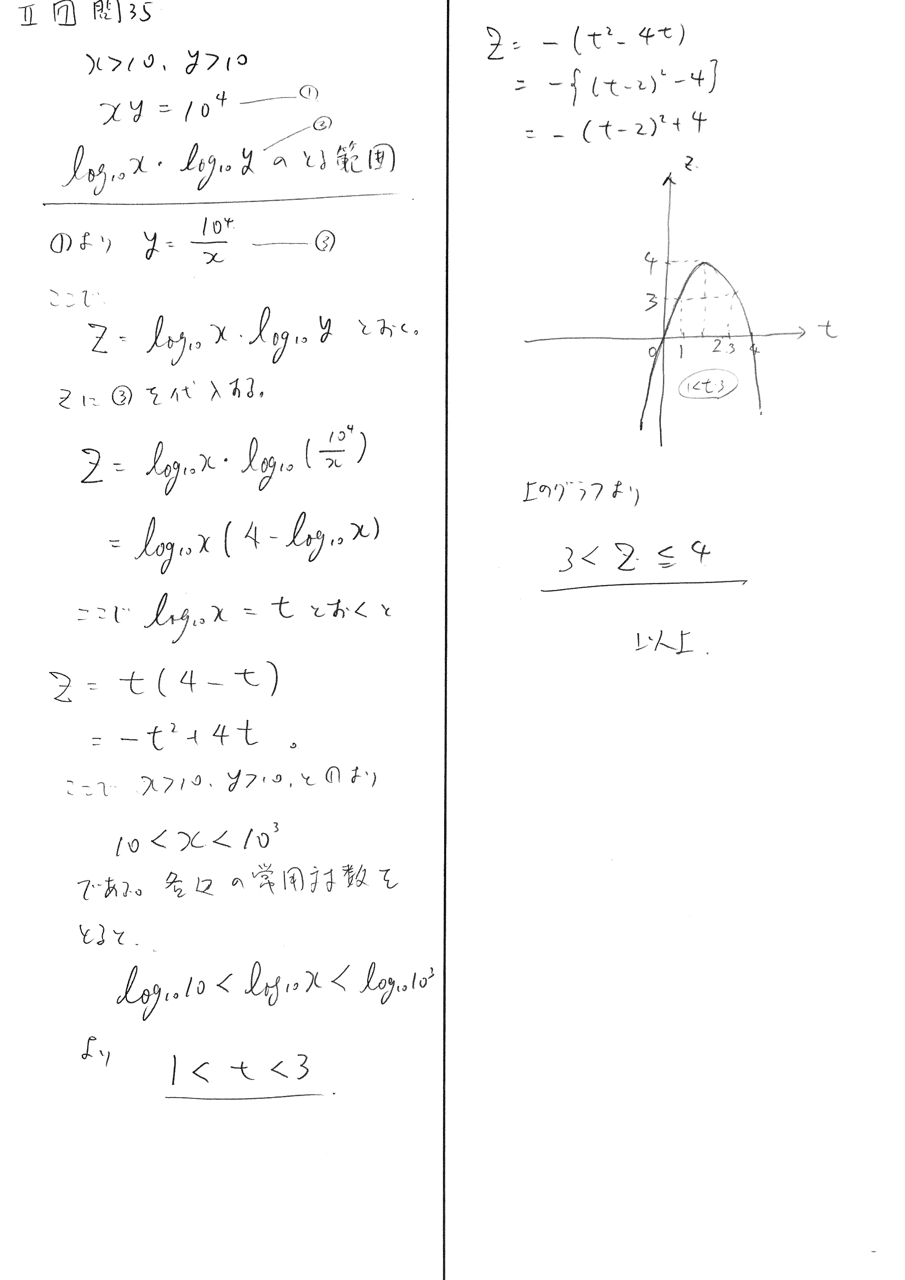 II 7 問35
x>10, y>10
xy=10⁴ ―①
log₁₀x・log₁₀y のとる範囲 ②
①より y=10⁴/x ―③
ここで
Z=log₁₀x・log₁₀y とおく。
Zに③を代入する。
Z=log₁₀x・log₁₀(10⁴/x)
=log₁₀x(4-log₁₀x)
ここで log₁₀x=tとおくと
Z=t(4-t)
=-t²+4t 。
ここで x>10, y>10, と①より
10<x<10³
である。各辺の常用対数を
とると.
log₁₀10<log₁₀x<log₁₀10³
より
1<t<3
Z=-(t²-4t)
=-{(t-2)²-4}
=-(t-2)²+4
z
4
3
0 1 2 3 4 t
1<t<3
上のグラフより
3<Z≦4
以上.